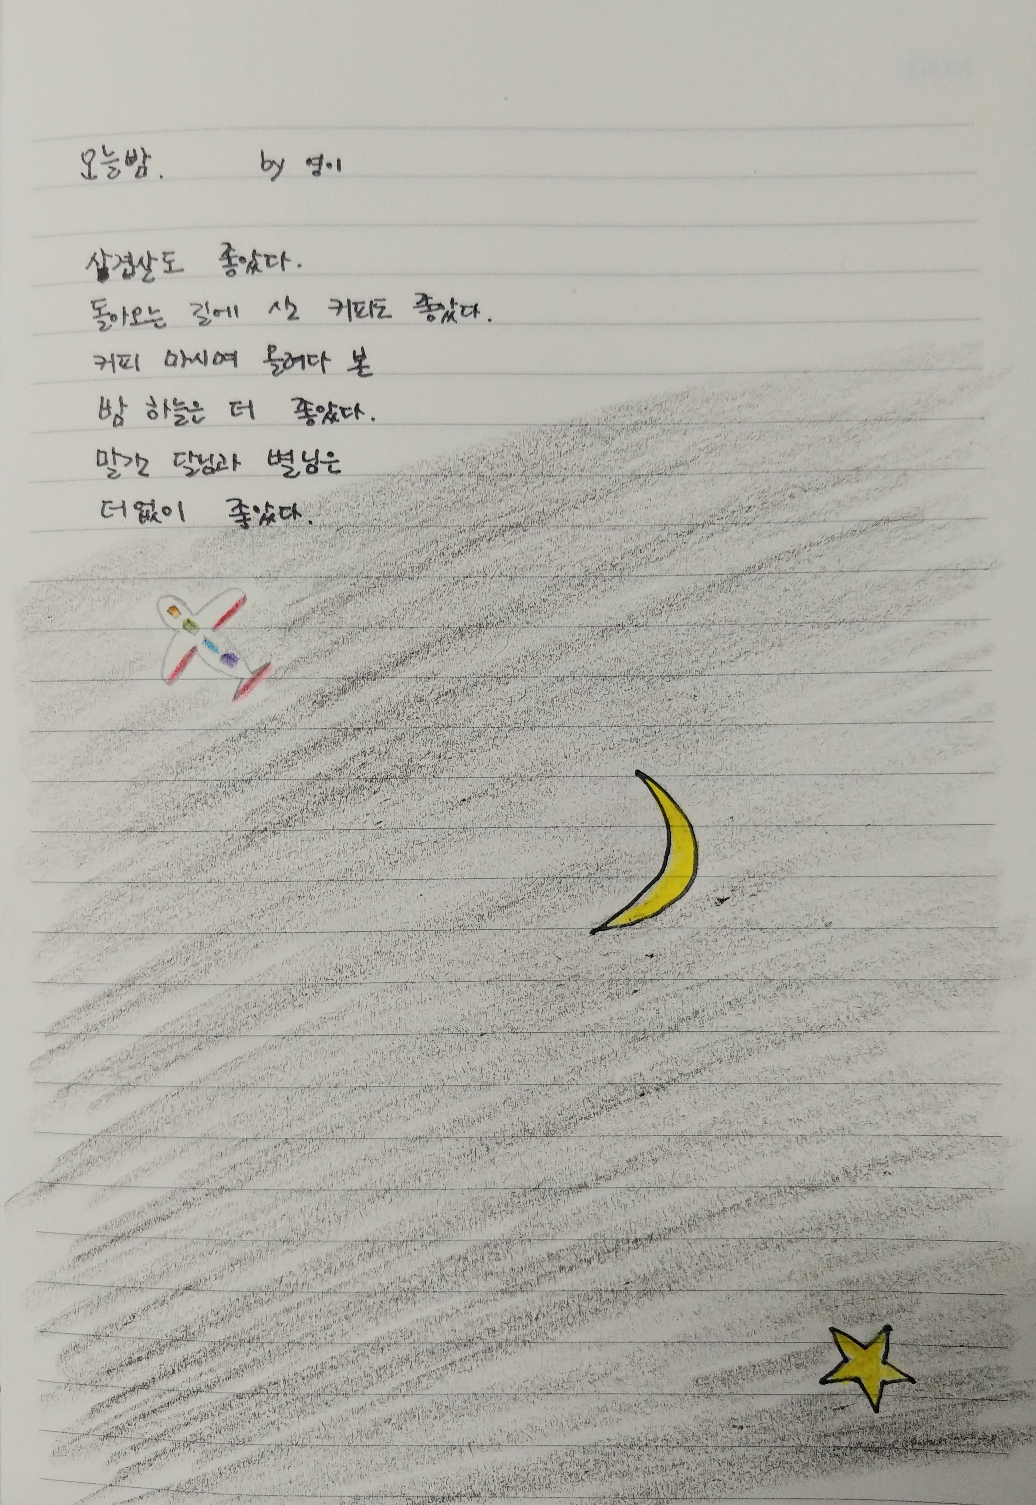 오늘밤. by 영이
삼겹살도 좋았다.
돌아오는 길에 산 커피도 좋았다.
커피 마시며 올려다 본
밤 하늘은 더 좋았다.
말간 달님과 별님은
더없이 좋았다.